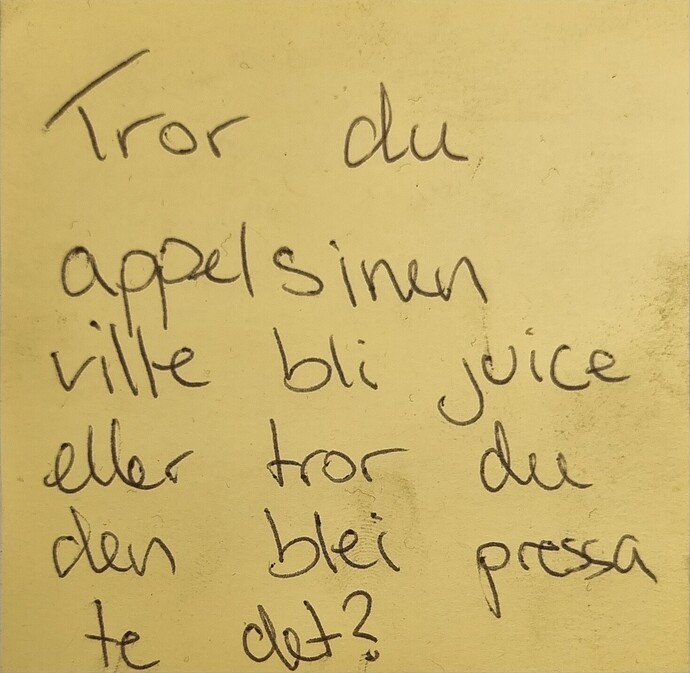 Tror du
appelsinen
ville bli juice
eller tror du
den blei pressa
te det?